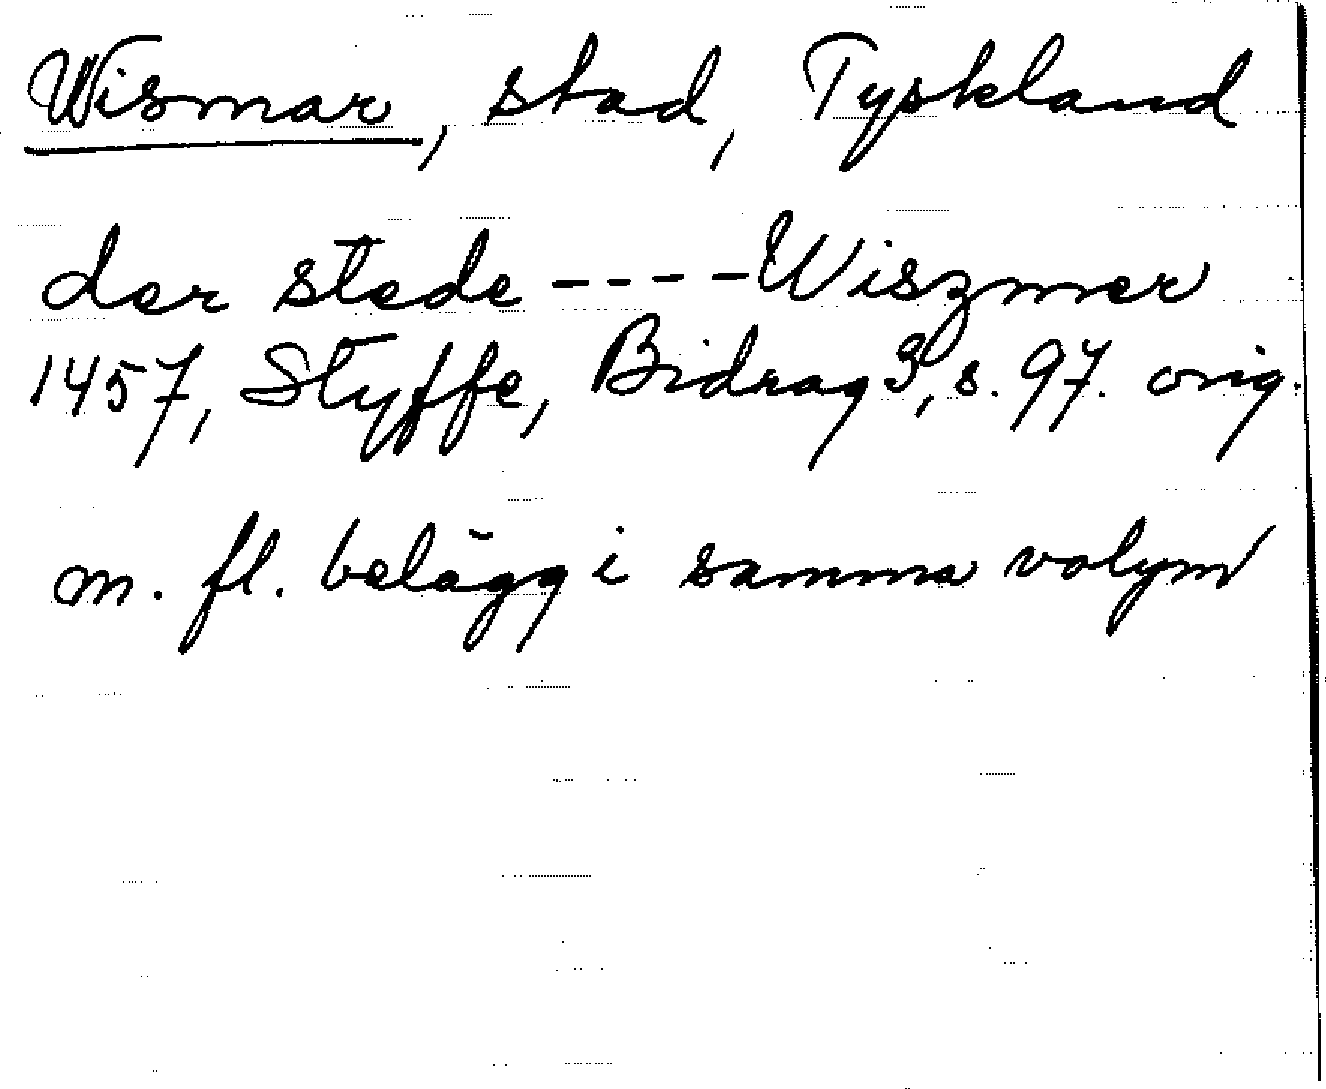 Wismar, stad, Tyskland
der stede ---- Wiszmer
1457, Styffe, Bidrag 3, s. 97. orig.
m. fl. belägg i samma volym